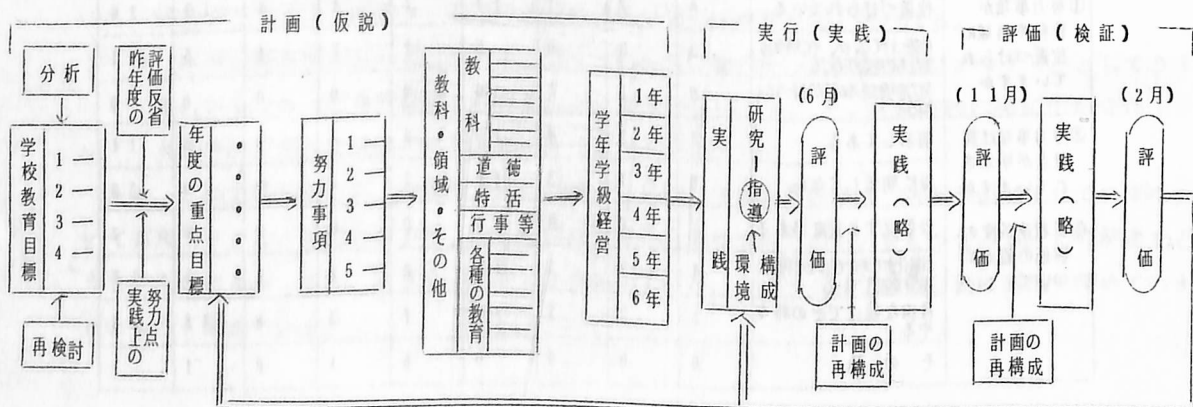 計画(仮説)
実行(実践)
評価(検証)
分析
昨年度の
評価反省
学校教育目標
1
2
3
4
再検討
実践上の
努力点
年度の重点目標
努力事項
1
2
3
4
5
教科・領域・その他
教科
道徳
特活
行事等
各種の教育
学年学級経営
1年
2年
3年
4年
5年
6年
実践
研究-指導
構成
環境
(6月)
評価
計画の
再構成
実践(略)
(11月)
評価
計画の
再構成
実践(略)
(2月)
評価